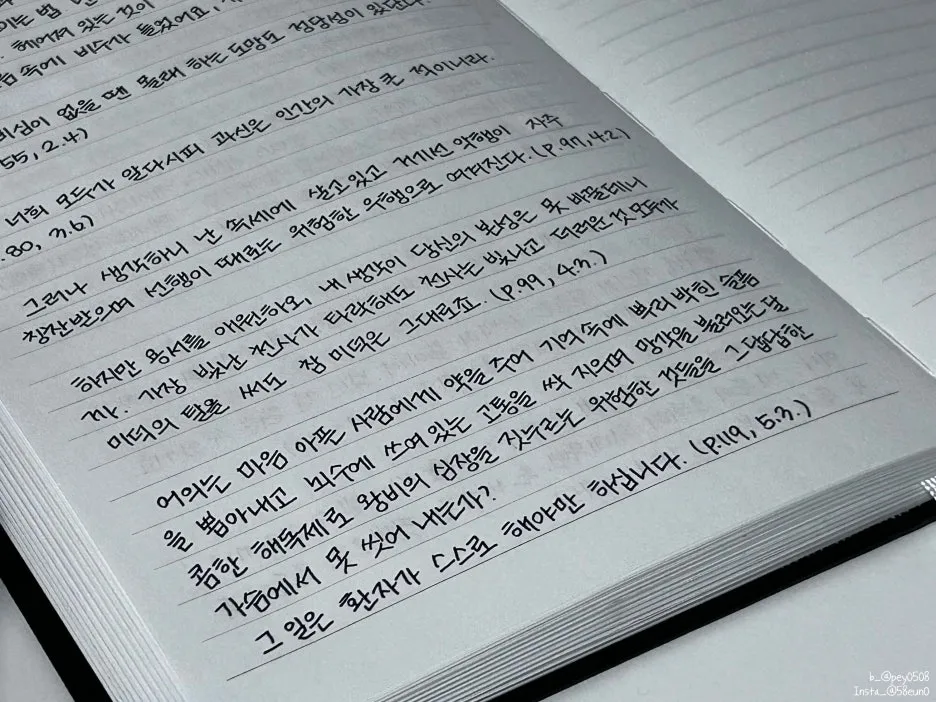 이는 법
헤어져 있는 것이
속에 비수가 들었어요.
비심이 없을 땐 몰래 하는 도망도 정당성이 있단다.
55, 2.4)
너희 모두가 알다시피 과신은 인간의 가장 큰 적이니라.
.80, 3.6)
그러나 생각하니 난 속세에 살고 있고 거기선 악행이 자주
칭찬받으며 선행이 때로는 위험한 우행으로 여겨진다. (p.97, 4.2)
하지만 용서를 애원하오, 내 생각이 당신의 본성은 못 바꿀테니
까. 가장 빛난 천사가 타락해도 천사는 빛나고 더러운 것 모두가
미덕의 탈을 써도 참 미덕은 그대로죠. (p.99, 4.3.)
어의는 마음 아픈 사람에게 약을 주어 기억 속에 뿌리 박힌 슬픔
을 뽑아내고 뇌수에 쓰여 있는 고통을 싹 지우며 망각을 불러오는 달
콤한 해독제로 왕비의 심장을 짓누르는 위험한 것들을 그 답답한
가슴에서 못 씻어 내는가?
그 일은 환자가 스스로 해야만 하십니다. (p.119, 5.3.)
b_@pey0508
Insta_@58eun0